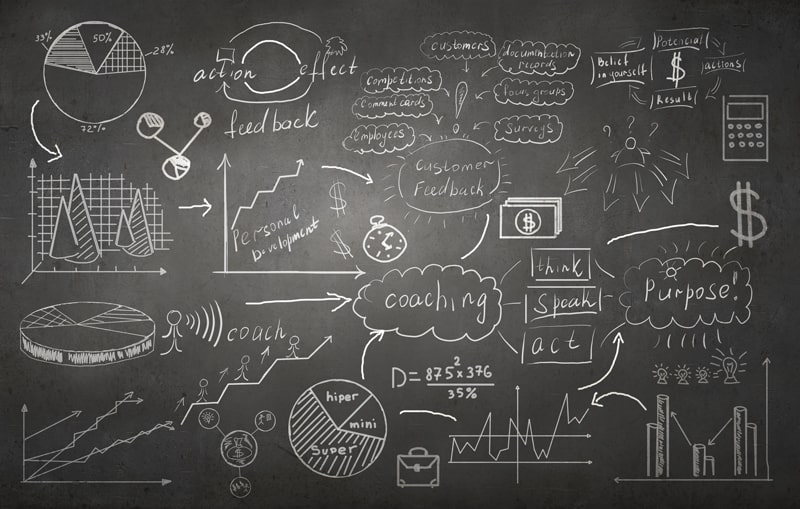 33%
50%
28%
72%
action
effect
feedback
customers
documentation
records
competitions
focus groups
comment cards
employees
Surveys
Customer
Feedback
Potencial
Belief
in yourself
$
actions
Result
? ? ?
Personal
Development
$
$
$
$
coaching
think
Speak
act
Purpose!
coach
D= 875²x376
35%
hiper
mini
Super